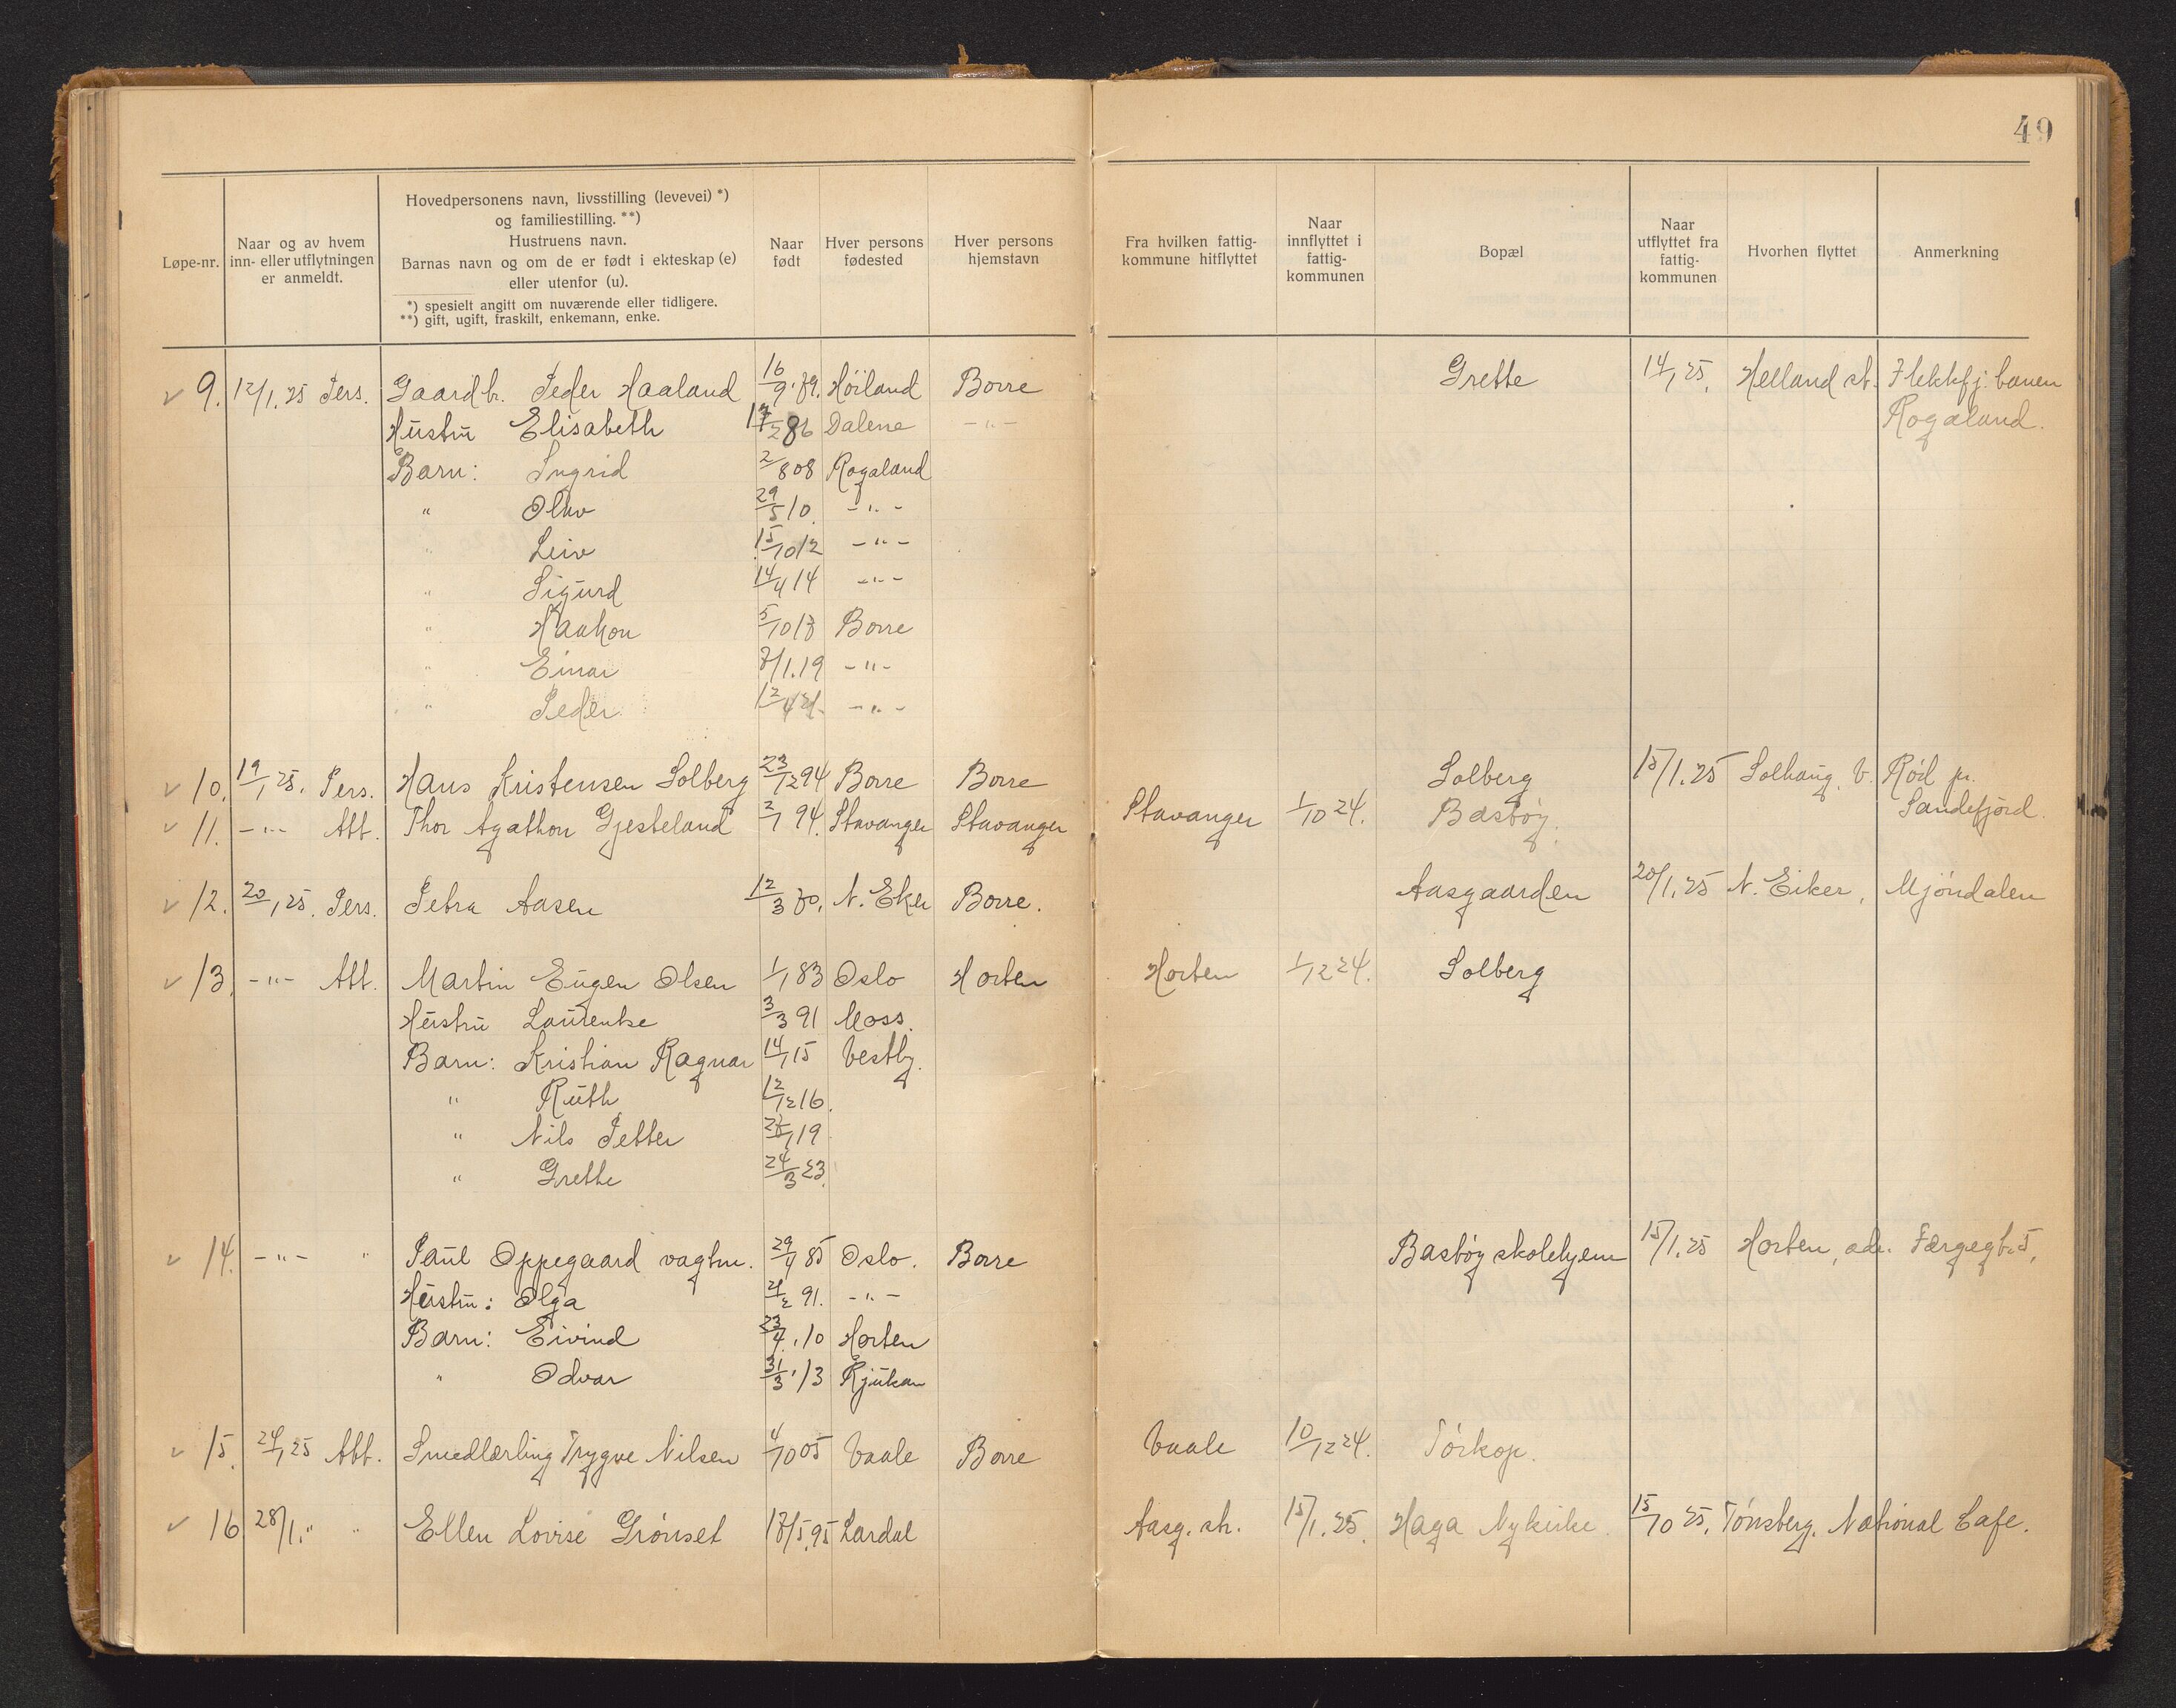 49
Løpe-nr.
Naar og av hvem
inn- eller utflytningen
er anmeldt.
Hovedpersonens navn, livsstilling (levevei) *)
og familiestilling. **)
Hustruens navn.
Barnas navn og om de er født i ekteskap (e)
eller utenfor (u).
*) spesielt angitt om nuværende eller tidligere.
**) gift, ugift, fraskilt, enkemann, enke.
Naar
født
Hver persons
fødested
Hver persons
hjemstavn
Fra hvilken fattig-
kommune hitflyttet
Naar
innflyttet i
fattig-
kommunen
Bopæl
Naar
utflyttet fra
fattig-
kommunen
Hvorhen flyttet
Anmerkning
9. 12/1.25 Pers. Gaardbr. Peder Haaland 16/9.79. Höiland Borre Grette 14/1 25. Helland st. Flekkfj. banen
Hustru Elisabeth 17/2 86 Dalene -"- Rogaland.
Barn: Ingrid 2/8 08 Rogaland
" Olav 29/5 10. -"-
" Leiv 15/10 12 -"-
" Sigurd 14/4 14 -"-
" Haakon 5/10 17 Borre
" Einar 7/1.19 -"-
" Peder 12/4 21. -"-
10. 19/1 25. Pers. Hans Kristensen Solberg 23/12 94 Borre Borre Solberg 15/1.25 Solhaug, V. Röd pr.
Sandefjord.
11. -"- Att. Thor Agathon Gjesteland 2/1 94. Stavanger Stavanger Stavanger 1/10 24. Bastöy.
12. 20/1 25. Pers. Petra Aasen 12/3 70. N. Eker Borre. Aasgaarden 20/1.25 N. Eiker, Mjöndalen
13. -"- Att. Martin Eugen Olsen 1/1 83 Oslo Horten Horten 1/12 24. Solberg
Hustru Laurentse 3/3 91 Moss.
Barn: Kristian Ragnar 14/1 15 Vestby.
" Ruth 12/12 16.
" Nils Petter 19
" Grethe 24/3 23.
14. -"- " Paul Oppegaard vagtm. 29/4 85 Oslo. Borre Bastöy skolehjem 15/1.25 Horten, adr. Færgegt. 5,
Hustru: Olga 21/2 91. -"-
Barn: Eivind 23/7.10 Horten
" Odvar 31/3.13 Rjukan
15. 24/1 25 Att. Smedlærling Trygve Nilsen 4/10 05 Vaale Borre Vaale 10/12 24. Törkop.
16 28/1." " Ellen Lovise Grönset 17/5.95 Lardal Aasg. str. 15/1.25. Haga Nykirke. 15/10 25. Tönsberg. National Cafe.